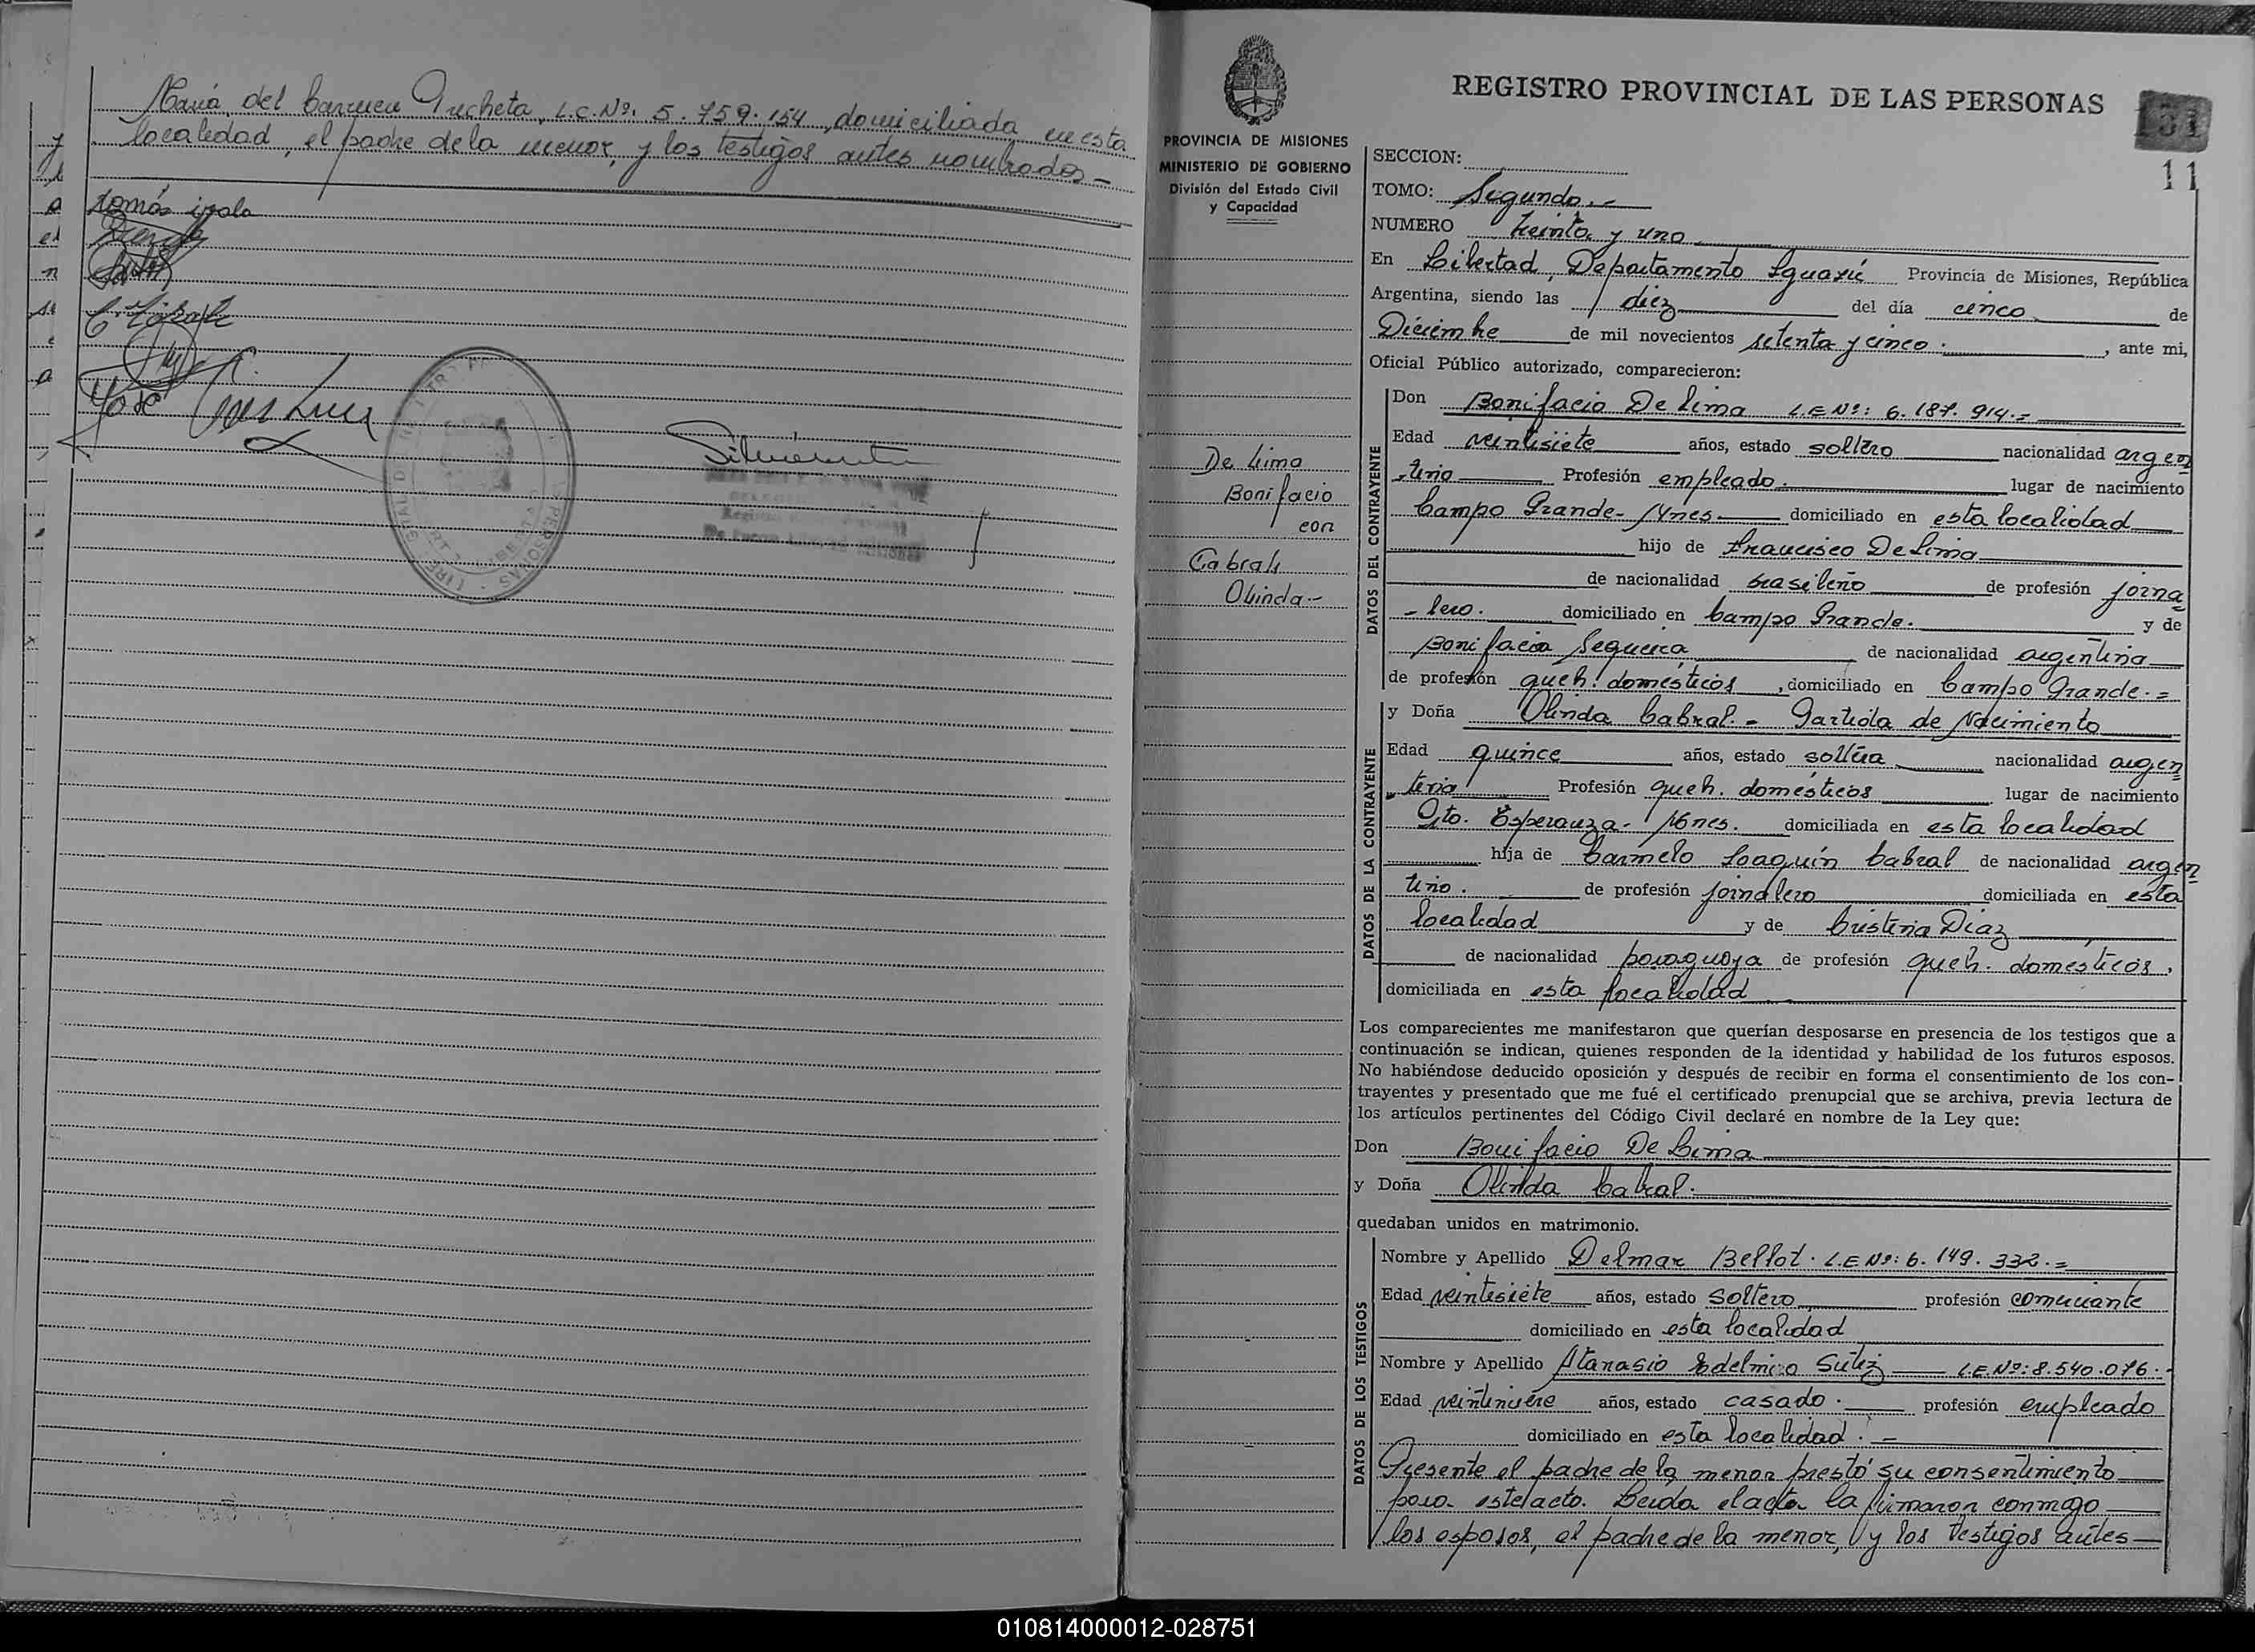 María del Carmen L.C.Nº. 5.759.154, domiciliada en esta
localidad, el padre de la menor, y los testigos antes nombrados -
tomás
José Luis
REGISTRO PROVINCIAL DE LAS PERSONAS
131
11
PROVINCIA DE MISIONES
MINISTERIO DE GOBIERNO
División del Estado Civil
y Capacidad
SECCION:
TOMO: Segundo.-
NUMERO treinta y uno
En Libertad, Departamento Iguazú Provincia de Misiones, República
Argentina, siendo las diez del día cinco de
Diciembre de mil novecientos setenta y cinco. , ante mi,
Oficial Público autorizado, comparecieron:
De Lima
Bonifacio
con
Cabral
Olinda-
DATOS DEL CONTRAYENTE
Don Bonifacio De Lima L.E Nº: 6.187.914.=
Edad veintisiete años, estado soltero nacionalidad argen
-tino Profesión empleado. lugar de nacimiento
Campo Grande- Mnes domiciliado en esta localidad
hijo de Francisco De Lima
de nacionalidad brasileño de profesión jorna
-lero. domiciliado en Campo Grande. y de
Bonifacia Sequeira de nacionalidad argentina
de profesión queh. domésticos, domiciliado en Campo Grande.=
DATOS DE LA CONTRAYENTE
y Doña Olinda Cabral.- Partida de Nacimiento
Edad quince años, estado soltera nacionalidad argen
tina Profesión queh. domésticos lugar de nacimiento
Pto. Esperanza- Mnes. domiciliada en esta localidad
hija de Carmelo Joaquín Cabral de nacionalidad argen
tino. de profesión jornalero domiciliada en esta
localidad y de Cristina Diaz
de nacionalidad paraguaya de profesión queh. domésticos,
domiciliada en esta localidad
Los comparecientes me manifestaron que querían desposarse en presencia de los testigos que a
continuación se indican, quienes responden de la identidad y habilidad de los futuros esposos.
No habiéndose deducido oposición y después de recibir en forma el consentimiento de los con-
trayentes y presentado que me fué el certificado prenupcial que se archiva, previa lectura de
los artículos pertinentes del Código Civil declaré en nombre de la Ley que:
Don Bonifacio De Lima
y Doña Olinda Cabral.
quedaban unidos en matrimonio.
DATOS DE LOS TESTIGOS
Nombre y Apellido Delmar Bellot. L.E Nº: 6.149.332.=
Edad veintisiete años, estado soltero profesión comerciante
domiciliado en esta localidad
Nombre y Apellido Atanasio Edelmiro L.E.Nº: 8.540.076.
Edad veintinueve años, estado casado. profesión empleado
domiciliado en esta localidad.-
Presente el padre de la menor prestó su consentimiento
para este acto. Leida el acta la firmaron conmigo
los esposos, el padre de la menor, y los testigos antes
010814000012-028751